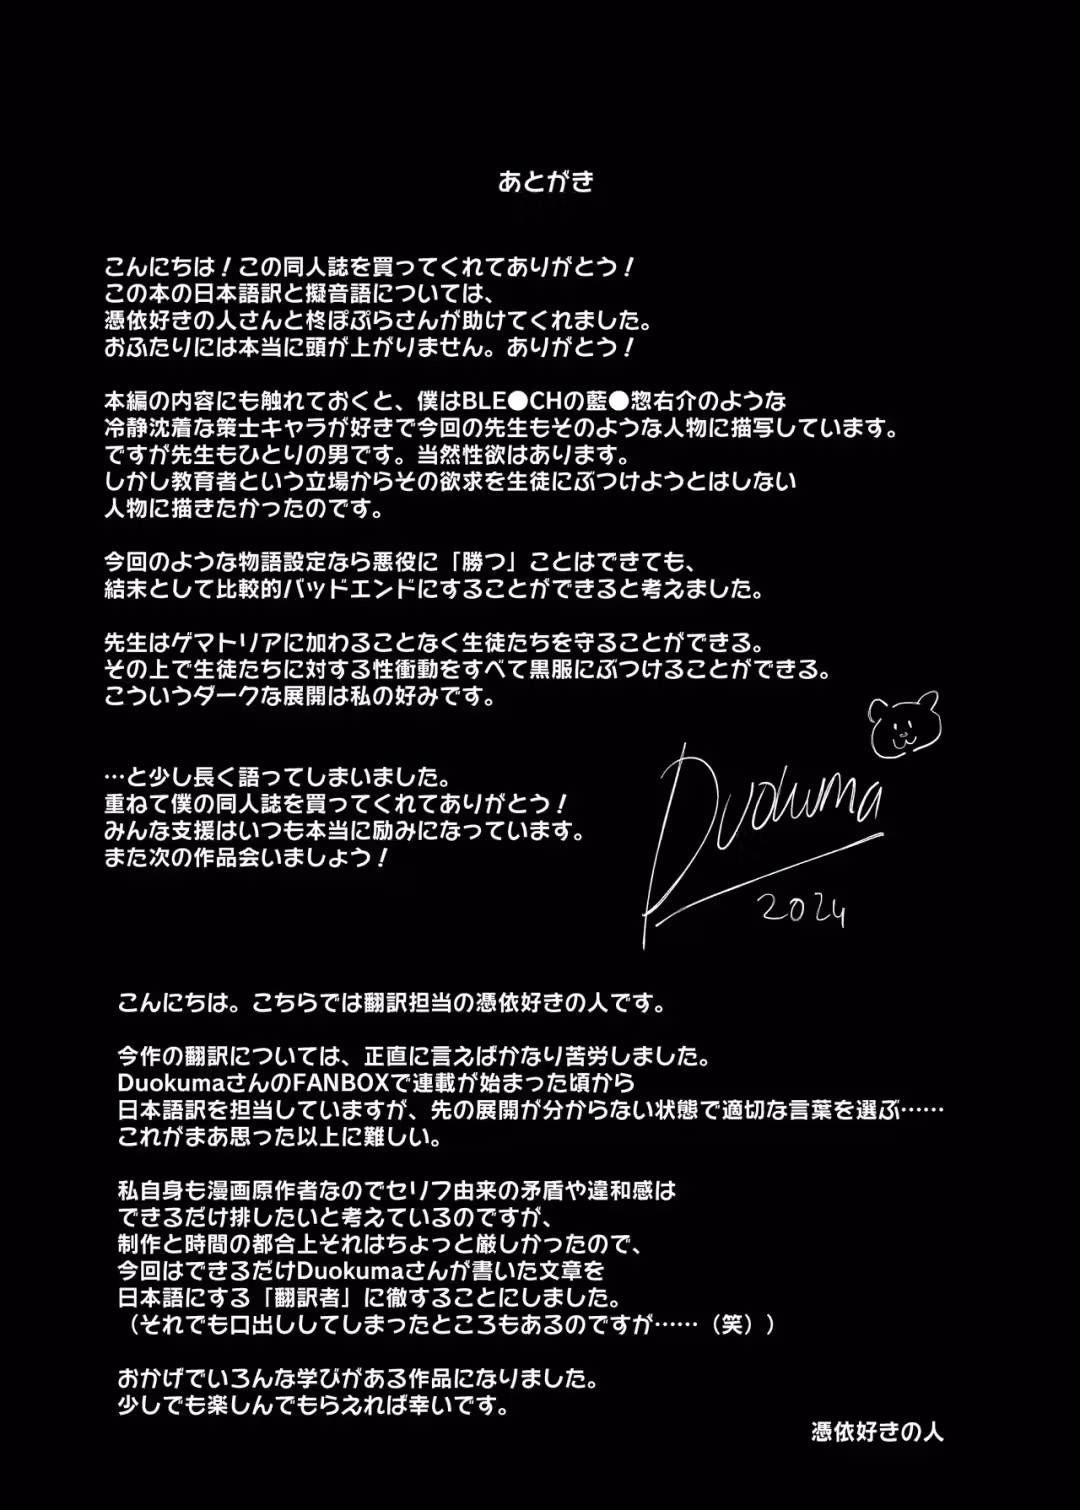 あとがき
こんにちは！この同人誌を買ってくれてありがとう！
この本の日本語訳と擬音語については、
憑依好きの人さんと柊ぽぷらさんが助けてくれました。
おふたりには本当に頭が上がりません。ありがとう！
本編の内容にも触れておくと、僕はBLE●CHの藍●惣右介のような
冷静沈着な策士キャラが好きで今回の先生もそのような人物に描写しています。
ですが先生もひとりの男です。当然性欲はあります。
しかし教育者という立場からその欲求を生徒にぶつけようとはしない
人物に描きたかったのです。
今回のような物語設定なら悪役に「勝つ」ことはできても、
結末として比較的バッドエンドにすることができると考えました。
先生はゲマトリアに加わることなく生徒たちを守ることができる。
その上で生徒たちに対する性衝動をすべて黒服にぶつけることができる。
こういうダークな展開は私の好みです。
…と少し長く語ってしまいました。
重ねて僕の同人誌を買ってくれてありがとう！
みんな支援はいつも本当に励みになっています。
また次の作品会いましょう！
Duokuma
2024
こんにちは。こちらでは翻訳担当の憑依好きの人です。
今作の翻訳については、正直に言えばかなり苦労しました。
DuokumaさんのFANBOXで連載が始まった頃から
日本語訳を担当していますが、先の展開が分からない状態で適切な言葉を選ぶ……
これがまあ思った以上に難しい。
私自身も漫画原作者なのでセリフ由来の矛盾や違和感は
できるだけ排したいと考えているのですが、
制作と時間の都合上それはちょっと厳しかったので、
今回はできるだけDuokumaさんが書いた文章を
日本語にする「翻訳者」に徹することにしました。
（それでも口出ししてしまったところもあるのですが……（笑））
おかげでいろんな学びがある作品になりました。
少しでも楽しんでもらえれば幸いです。
憑依好きの人